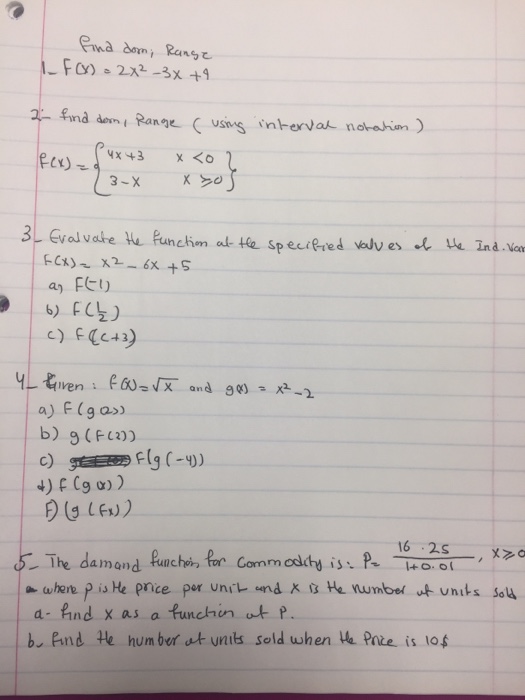 find dom, Range
1- F(x) = 2x² - 3x + 9
2- find dom, Range ( using interval notation )
f(x) = { 4x + 3 x < 0 }
{ 3 - x x ≥ 0 }
3- Evaluate the function at the specified values of the Ind. Var
F(x) = x² - 6x + 5
a) F(-1)
b) F(1/2)
c) F((c+3)
4- Given : f(x) = √x and g(x) = x² - 2
a) F(g(2))
b) g(F(2))
c) F(g(-4))
d) f (g(x))
F) (g(fx))
5- The damand function for Commodity is : P = 16.25 / 1+0.01 , x ≥ 0
where p is the price per unit and x is the number of units sold
a- find x as a function of P.
b- find the number of units sold when the Price is 10$